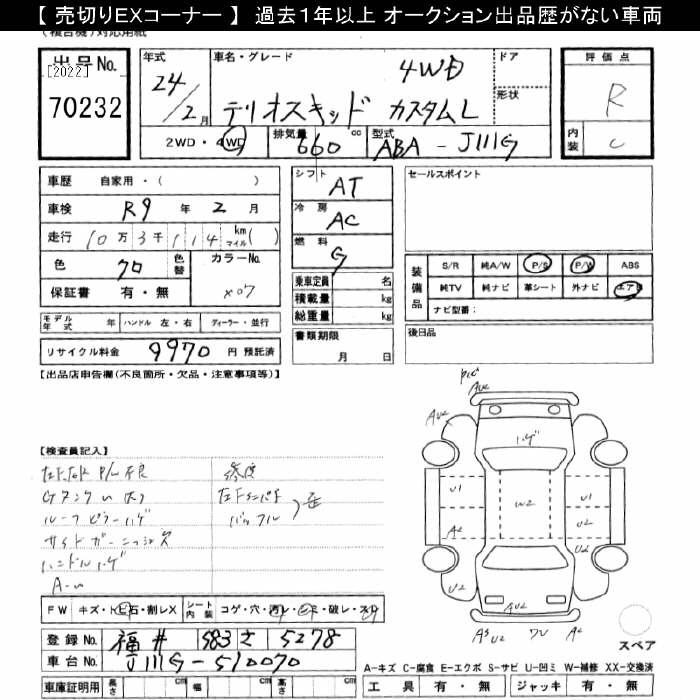 【 売切りEXコーナー 】 過去１年以上 オークション出品歴がない車両
(複合機) 対応用紙
出品No. [2022] 70232
年式 24/2月
車名・グレード 4WD テリオスキッド カスタムL
ドア
形状
2WD・4WD 排気量 660 cc 型式 ABA - J111G
評価点 R
内装 C
車歴 自家用・( )
車検 R9 年 2 月
走行 10万3千114 km マイル ( )
色 クロ 色替 カラーNo. X07
保証書 有・無
シフト AT
冷房 AC
燃料 G
乗車定員 名
積載量 kg
総重量 kg
セールスポイント
装備品 S/R 純A/W P/S P/W ABS
純TV 純ナビ 革シート 外ナビ エアB
ナビ型番：
モデル年式 年 ハンドル 左・右 ディーラー・並行
書類期限 月 日
後日品
リサイクル料金 9970 円 預託済
【出品店申告欄(不良箇所・欠品・注意事項等)】
【検査員記入】
ルーフ ピラー ハゲ
ハンドル ハゲ
AU2
ハゲ
U1 W2 U1
A2 U2
U2 U2
U2
FW キズ・トビ石・割レX シート内装 コゲ・穴・汚レ・シミ・破レ・スリ
登録No. 福井 583 さ 5278
車台No. J111G-510070
車庫証明用 長さ cm 幅 cm 高さ cm
スペア
A−キズ C−腐食 E−エクボ S−サビ U−凹ミ W−補修 XX−交換済
工具 有・無 ジャッキ 有・無